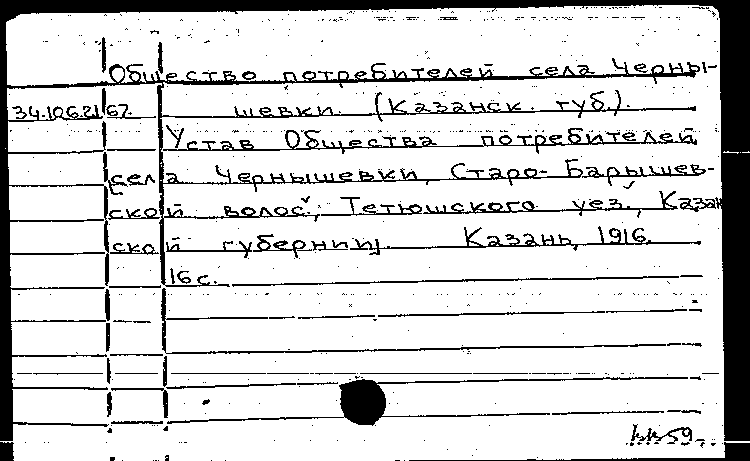 Общество потребителей села Черны-
34.106.21/67. шевки (Казанск. губ.).
Устав Общества потребителей
села Чернышевки, Старо-Барышев-
ской волос., Тетюшского уез., Казан
ской губернии. Казань, 1916.
16 с.